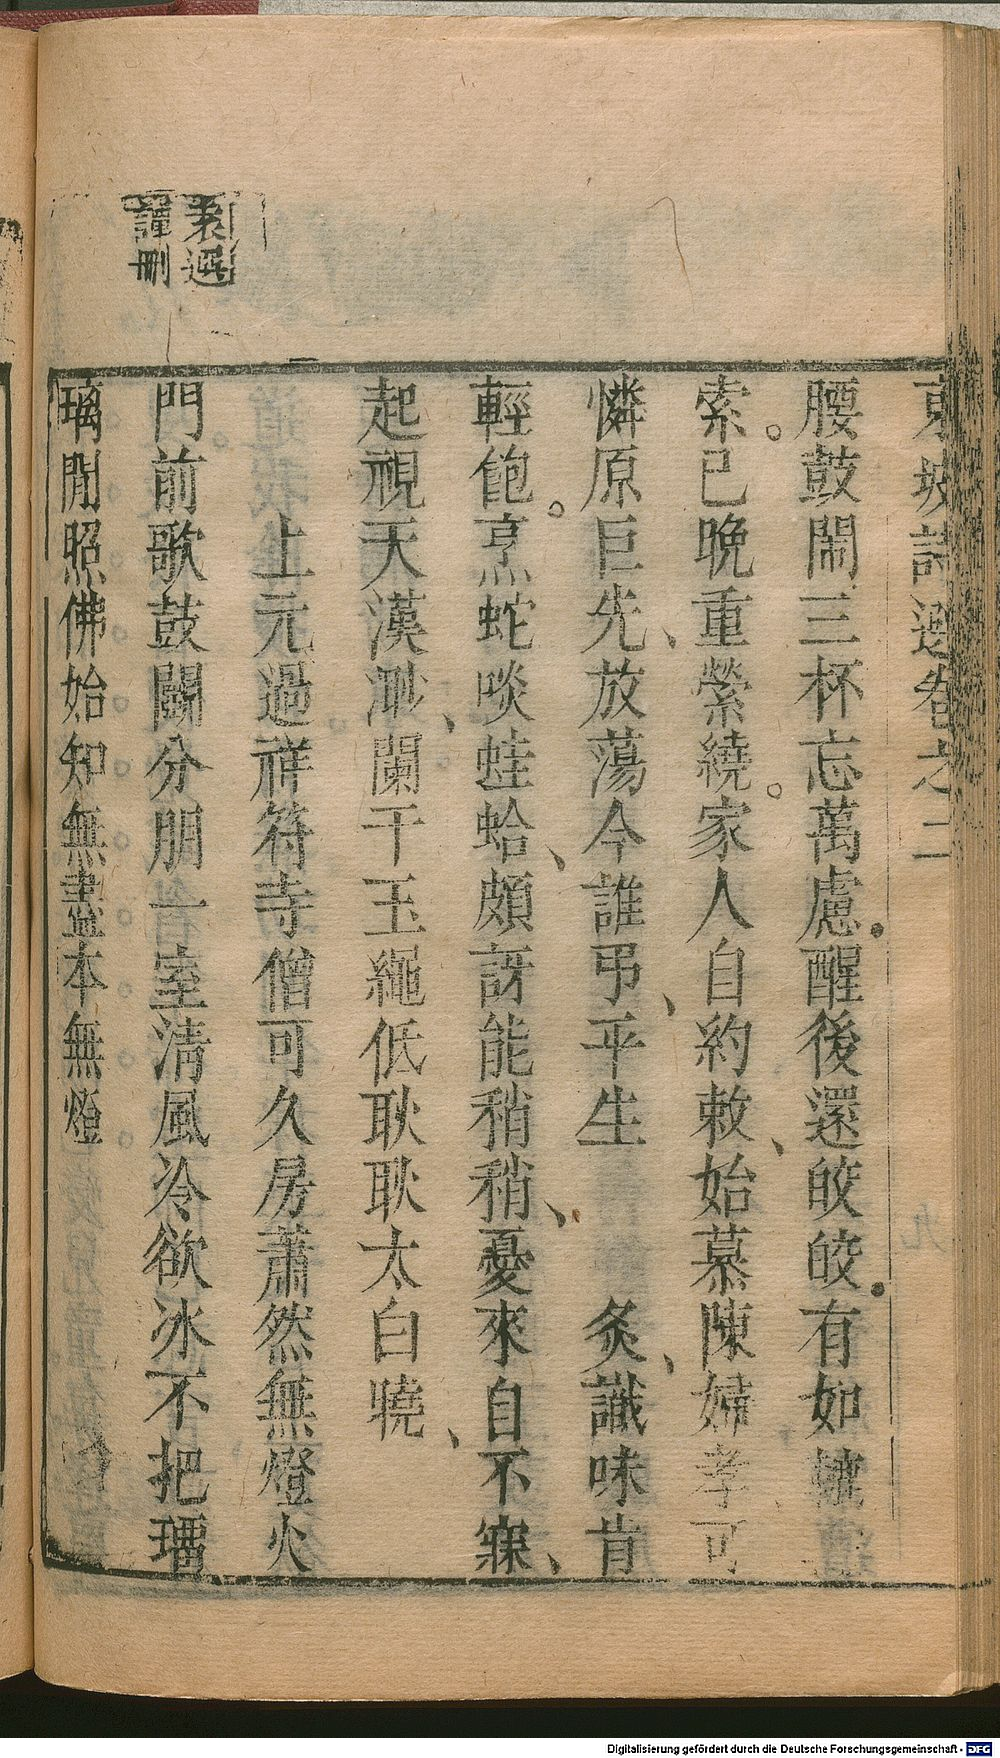 東坡詩選卷之二
腰鼓鬧三杯忘萬慮醒後還皎皎有如轆
索已晚重縈繞家人自約敕始慕陳婦孝可
憐原巨先放蕩今誰弔平生 炙識味肯
輕飽烹蛇啖蛙蛤頗訝能稍稍憂來自不寐
起視天漢渺闌干玉繩低耿耿太白曉
上元過祥符寺僧可久房蕭然無燈火
門前歌鼓鬬分朋一室清風冷欲冰不把瑠
璃閒照佛始知無盡本無燈
袁選
譚刪
九
Digitalisierung gefördert durch die Deutsche Forschungsgemeinschaft - DFG